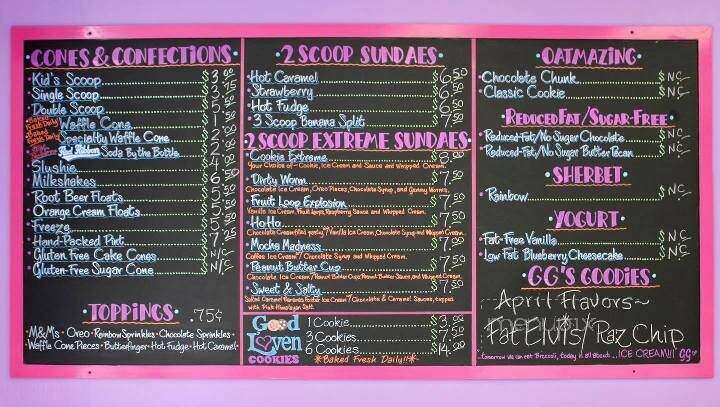 CONES & CONFECTIONS
Kid's Scoop $3.00
Single Scoop $3.75
Double Scoop $5
Baked Fresh Daily Waffle Cone $1
Baked Fresh Daily Specialty Waffle Cone $2
Red Ribbon Soda By the Bottle $2
Slushie $4
Milkshakes $6.50
Root Beer Floats $5.50
Orange Cream Floats $5.50
Freeze $5.50
Hand-Packed Pint $7.25
Gluten Free Cake Cones N/C
Gluten-Free Sugar Cone N/C
TOPPINGS .75¢
M&Ms • Oreo • Rainbow Sprinkles • Chocolate Sprinkles •
Waffle Cone Pieces • Butterfinger • Hot Fudge • Hot Caramel •
2 SCOOP SUNDAES
Hot Caramel $6.50
Strawberry $6.50
Hot Fudge $6.50
3 Scoop Banana Split $7.50
2 SCOOP EXTREME SUNDAES
Cookie Extreme $8.00
Your Choice of - Cookie, Ice Cream and Sauce and Whipped Cream.
Dirty Worm $7.50
Chocolate Ice Cream, Oreo Pieces, Chocolate Syrup, and Gummy Worms.
Fruit Loop Explosion $7.50
Vanilla Ice Cream, Fruit Loops, Raspberry Sauce and Whipped Cream.
HoHo $7.50
Chocolate Cream filled pastry / Vanilla Ice Cream, Chocolate Syrup and Whipped Cream.
Mocha Madness $7.50
Coffee Ice Cream / Chocolate Syrup and Whipped Cream.
Peanut Butter Cup $7.50
Chocolate Ice Cream / Peanut Butter Cups, Peanut Butter Sauce, and Whipped Cream.
Sweet & Salty $7.50
Salted Caramel Ice Cream / Chocolate & Caramel Sauces, topped
with Pink Himalayan Salt
Good Loven COOKIES
1 Cookie $3.00
3 Cookies $7.50
6 Cookies $14.00
*Baked Fresh Daily!!*
OATMAZING
Chocolate Chunk $NC
Classic Cookie $NC
REDUCED FAT/SUGAR-FREE
Reduced-Fat/No Sugar Chocolate $NC
Reduced-Fat/No Sugar Butter Pecan $NC
SHERBET
Rainbow $NC
YOGURT
Fat-Free Vanilla $NC
Low Fat Blueberry Cheesecake $NC
GG'S GOODIES
April Flavors~
Fat Elvis/Raz Chip
tomorrow we can eat Broccoli, today is all about...ICE CREAM!!! GG